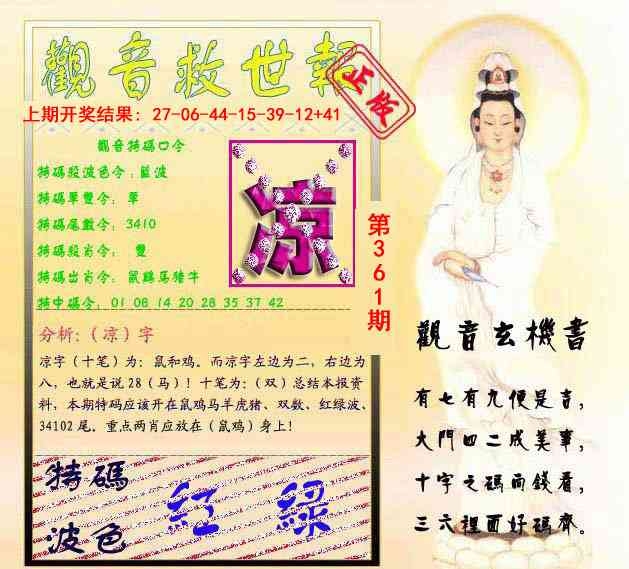 觀音救世報
正版
上期开奖结果: 27-06-44-15-39-12+41
觀音特碼口令
特碼段波色令:藍波
特碼單雙令: 單
特碼尾數令: 3410
特碼段肖令: 雙
特碼出肖令: 鼠鷄馬猪牛
特中碼令: 01 08 14 20 28 35 37 42
凉
第361期
分析:(凉)字
凉字(十笔)为: 鼠和鸡。而凉字左边为二, 右边为
八, 也就是说 28(马)! 十笔为:(双)总结本报资
料, 本期特码应该开在鼠鸡马羊虎猪、双数、红绿波、
34102 尾。重点两肖应放在(鼠鸡)身上!
特碼
波色
紅 綠
觀音玄機書
有七有九便是吉,
大門四二成美事,
十字之碼両錢看,
三六裡面好碼齊。